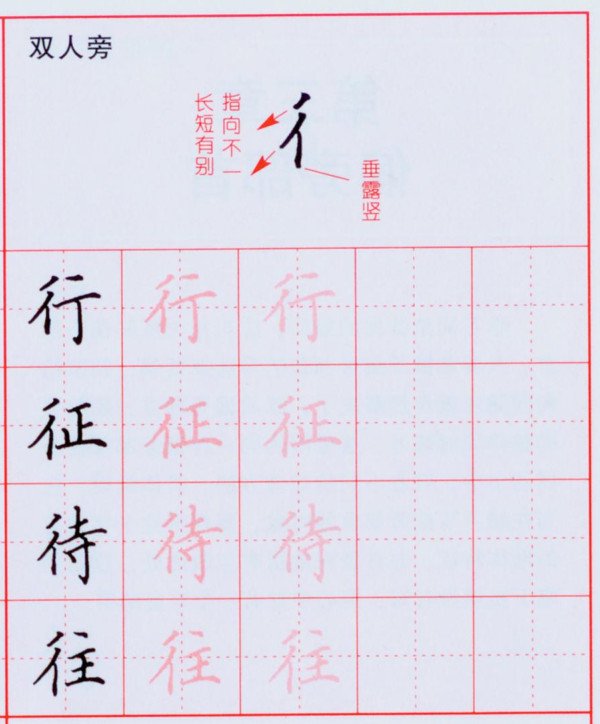 双人旁
指向不一
长短有别
彳
垂露竖
行 行 行
征 征 征
待 待 待
往 往 往